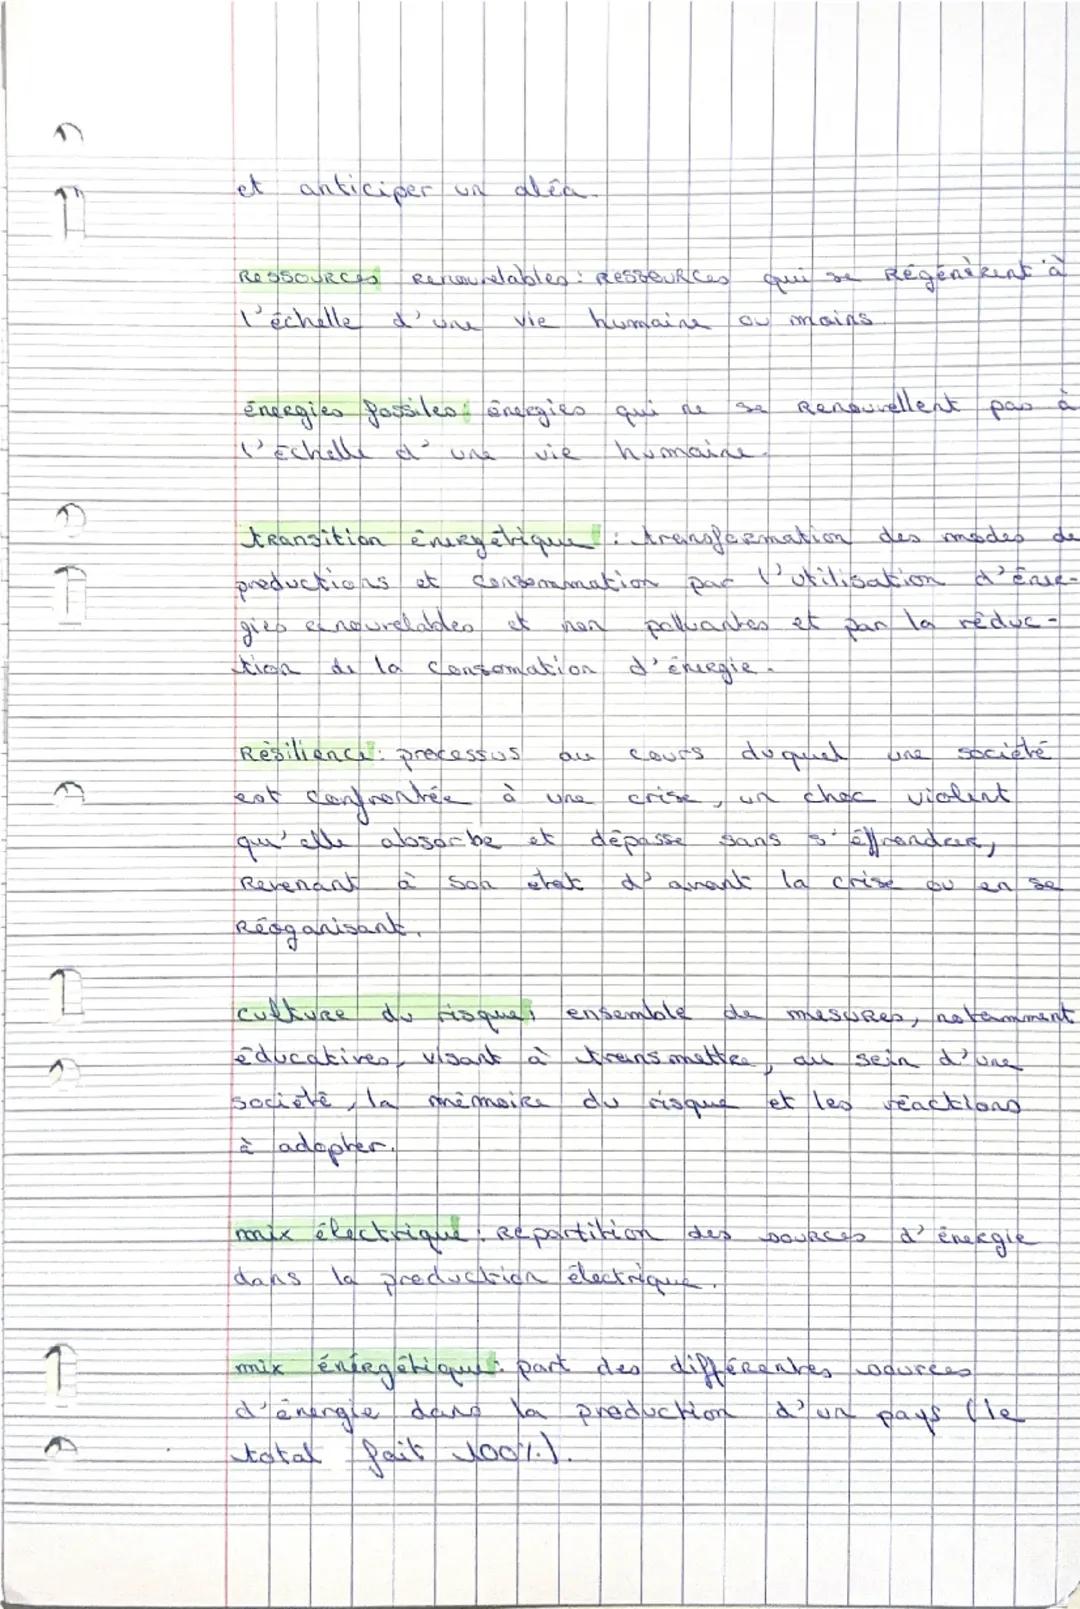 et anticiper un aléa.
Ressources Renouvelables : Ressources qui se Régénèrent à
l'échelle d'une vie humaine ou moins.
énergies fossiles : énergies qui ne se Renouvellent pas à
l'échelle d'une vie humaine.
transition énergétique : transformation des modes de
productions et consommation par l'utilisation d'éner-
gies renouvelables et non polluantes et par la réduc-
tion de la consomation d'énergie.
Résilience : processus au cours duquel une société
est confrontée à une crise, un choc violent
qu'elle absorbe et dépasse sans s'éffrondrer,
Revenant à son état d'avant la crise ou en se
Réoganisant.
culture du risque : ensemble de mesures, notamment
éducatives, visant à transmettre, au sein d'une
société, la mémoire du risque et les réactions
à adopter.
mix électrique : Repartition des sources d'énergie
dans la production électrique.
mix énérgétique : part des différentes sources
d'énergie dans la production d'un pays (le
total fait 100%).